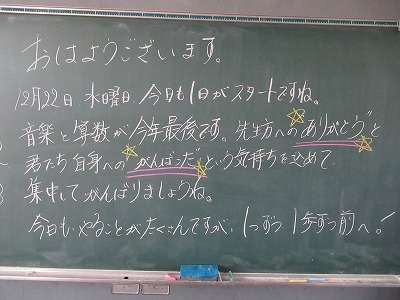 おはようございます。
12月22日 水曜日 今日も1日がスタートですね。
音楽と算数が今年最後です。先生方への"ありがとう"と
君たち自身への"がんばった"という気持ちを込めて
集中してがんばりましょうね。
今日もやることがたくさんですが、1つずつ1歩ずつ前へ!